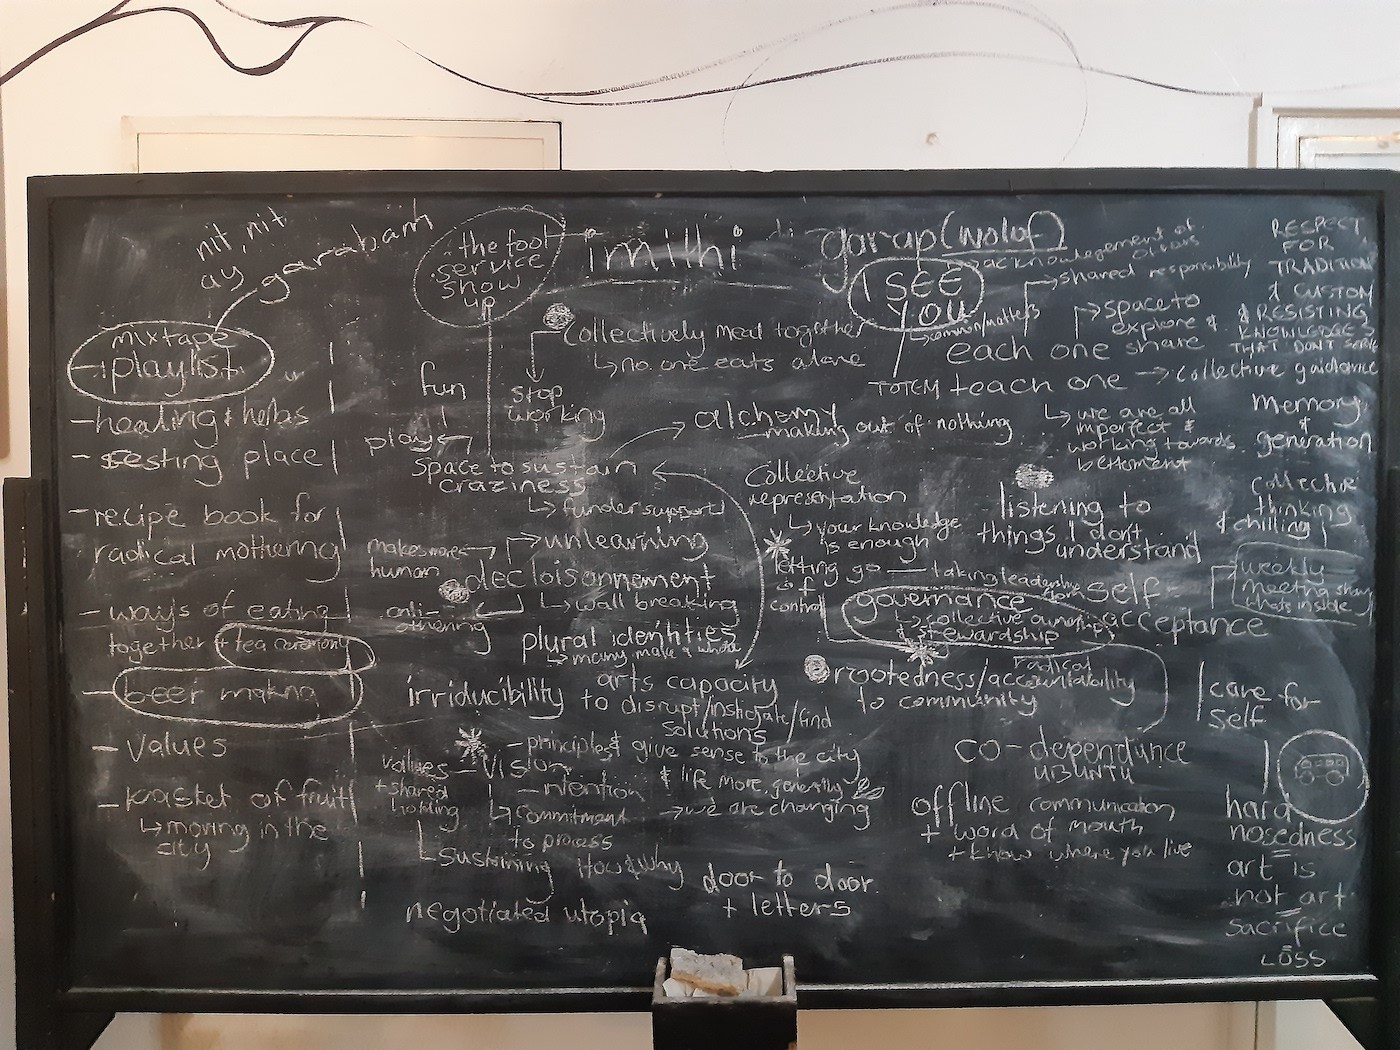 nit, nit
ay garabam
mixtape
+ playlist
- healing & herbs
- resting place
- recipe book for
radical mothering
- ways of eating
together + tea ceremony
- beer making
- values
- basket of fruit
↳ moving in the
city
the foot
service
show
up
imithi
garap (wolof)
I SEE
YOU
acknowledgement of
shared responsibility
common/matters
space to
explore &
each one share
TOTEM teach one → collective guidance
↳ we are all
imperfect &
working towards
betterment
RESPECT
FOR
TRADITION
& CUSTOM
& RESISTING
KNOWLEDGES
THAT DON'T SERVE
memory
&
generation
collective
thinking
& chilling
weekly
meeting
collectively meal together
↳ no one eats alone
stop
working
fun
play
space to sustain
craziness
↳ funder support
alchemy
making out of nothing
makes more
human
unlearning
decloisonnement
↳ wall breaking
anti-
othering
plural identities
↳ many, make a whole
collective
representation
↳ your knowledge
is enough
letting go — taking leadership from
of
control
listening to
things I don't
understand
self
acceptance
governance
↳ collective owner
& stewardship
irriducibility
arts capacity
to disrupt/instigate/find
solutions
rootedness/radical accountability
to community
care for
self
co-dependance
UBUNTU
values — vision
+ shared
holding
- principles & give sense to the city
- intention
& life more generally
↳ commitment
to process
→ we are changing
↳ sustaining How & why
negotiated utopia
door to door
+ letters
offline communication
+ word of mouth
+ know where you live
hard
nosedness
=
art is
not art
=
sacrifice
=
LOSS